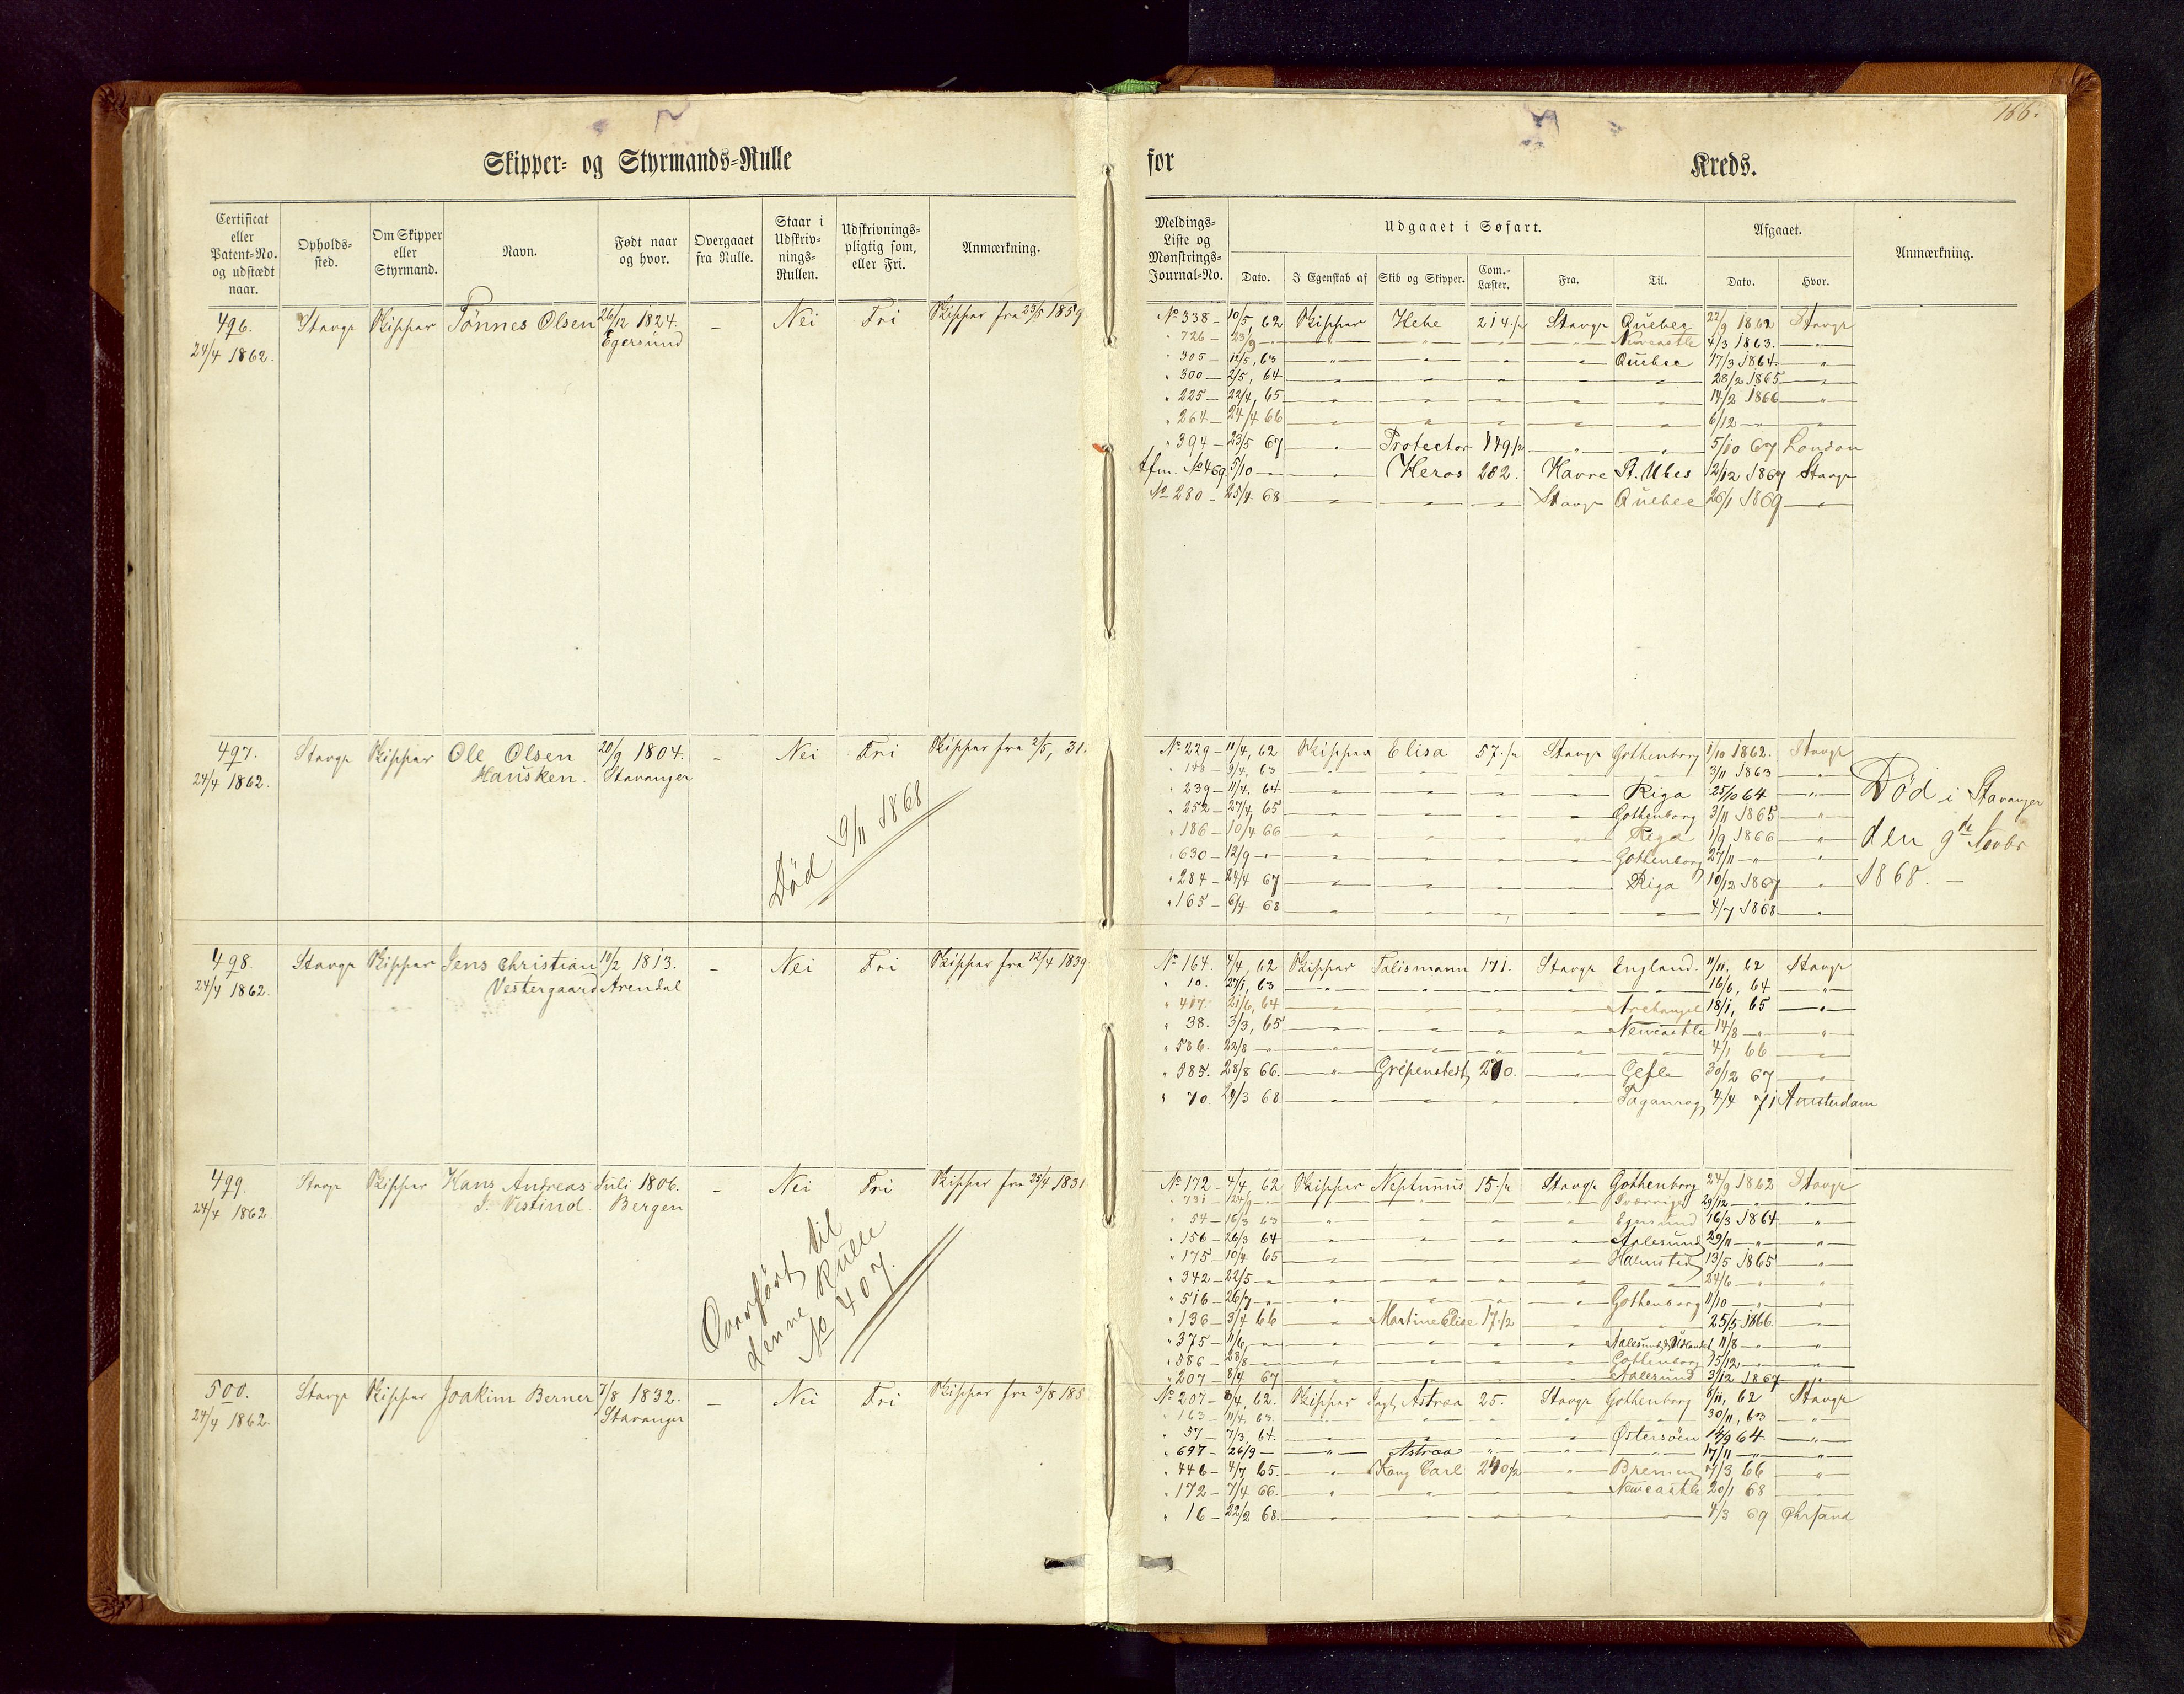 166.
Skipper- og Styrmands-Rulle for Kreds.
Certificat eller Patent-No. og udstædt naar.
Opholds-sted.
Om Skipper eller Styrmand.
Navn.
Født naar og hvor.
Overgaaet fra Rulle.
Staar i Udskriv-nings-Rullen.
Udskrivnings-pligtig som, eller Fri.
Anmærkning.
Meldings-Liste og Mønstrings-Journal-No.
Udgaaet i Søfart.
Dato.
I Egenskab af
Skib og Skipper.
Com.-Læster.
Fra.
Til.
Afgaaet.
Dato.
Hvor.
Anmærkning.
496. Stavgr Skipper Tønnes Olsen 26/12 1824. – Nei Fri Skipper fra 23/5 1859
24/4 1862. Egersund
No 338 – 10/5, 62 Skipper Hebe 214 Stavgr Quebec 22/9 1862 Stavgr
" 726 – 23/9 – " Newcastle 4/3 1863. "
" 305 – 12/5, 63 " Quebec 17/3 1864 "
" 300 – 2/5, 64 " 28/2 1865 "
" 225 – 22/4, 65 " 14/2 1866 "
" 264 – 24/4 66 " 6/12 – "
" 394 – 23/5 67 " Protector 149 " 5/10 67 London
Afm. No 469 5/10 – " Heros 202. Havre St. Ubes 12/12 1867 Stavgr
No 280 – 25/4 68 " Stavgr Quebec 26/1 1869 "
497. Stavgr Skipper Ole Olsen 20/9 1804. – Nei Fri Skipper fra 2/5, 31.
24/4 1862. Hausken. Stavanger
Død 9/11 1868
No 229 – 11/4, 62 Skipper Elisa 57 Stavgr Gothenborg 1/10 1862. Stavgr
" 148 – 9/4, 63 " 3/11 1863 "
" 239 – 11/4, 64 " Riga 25/10 64 "
" 252 – 27/4, 65 " Gothenborg 3/11 1865 "
" 186 – 10/4 66 " Riga 1/9 1866 "
" 630 – 12/9 – " Gothenborg 27/11 – "
" 284 – 24/4 67 " Riga 10/12 1867 "
" 165 – 6/4 68 " 4/7 1868 "
Død i Stavanger
den 9de Novbr
1868. –
498. Stavgr Skipper Jens Christian 10/2 1813. – Nei Fri Skipper fra 12/4 1839
24/4 1862. Vestergaard Arendal
No 164. 4/4, 62 Skipper Talismann 171. Stavgr England. 11/11, 62 Stavgr
" 10. 27/1, 63 " 16/6, 64 "
" 417. 21/6, 64 " Archangel 18/1, 65 "
" 38. 3/3, 65 " Newcastle 14/8 – "
" 536. 22/8 – " 4/1 66 "
" 585. 28/8 66. " Gripenstedt 270. " Gefle 30/12 67 "
" 70. 24/3 68 " Taganrog 4/4 71 Amsterdam
499. Stavgr Skipper Hans Andreas Juli 1806. – Nei Fri Skipper fra 25/4 1831
24/4 1862. J. Vestind. Bergen
Overført til
denne Rulle
No 407.
No 172 – 4/4, 62 Skipper Neptunus 15 Stavgr Gothenborg 24/9 1862 Stavgr
" 731 – " Sverrige 29/12 – "
" 54 – 16/3 63 " 16/3 1864 "
" 156 – 26/3 64 " Aalesund 29/11 – "
" 175 – 10/4 65 " Halmstad 13/5 1865 "
" 342 – 22/5 – " 24/6 – "
" 516 – 26/7 – " Gothenborg 11/10 – "
" 136 – 3/4 66 " Martine Elise 17 " 25/5 1866 "
" 375 – 11/6, – " 11/8 – "
" 586 – 28/8 – " Gothenborg 15/12 – "
" 207 – 8/4 67 " Aalesund 3/12 1867 "
500. Stavgr Skipper Joakim Berner 7/8 1832. – Nei Fri Skipper fra 3/8 185
24/4 1862. Stavanger
No 207 – 8/4, 62. Skipper Jagt Astræa 25. Stavgr Gothenborg 8/11, 62 Stavgr
" 163 – 11/4, 63. " 30/11, 63 "
" 57 – 7/3, 64. " Østersøen 14/9 64 "
" 697 – 26/9 – " Astræa " 17/11 – "
" 446 – 4/7 65. " Kong Carl 240 " Bremen 7/3 66 "
" 172 – 7/4 66. " Newcastle 20/1 68 "
" 16 – 22/2 68. " 4/3 69 Chrsand